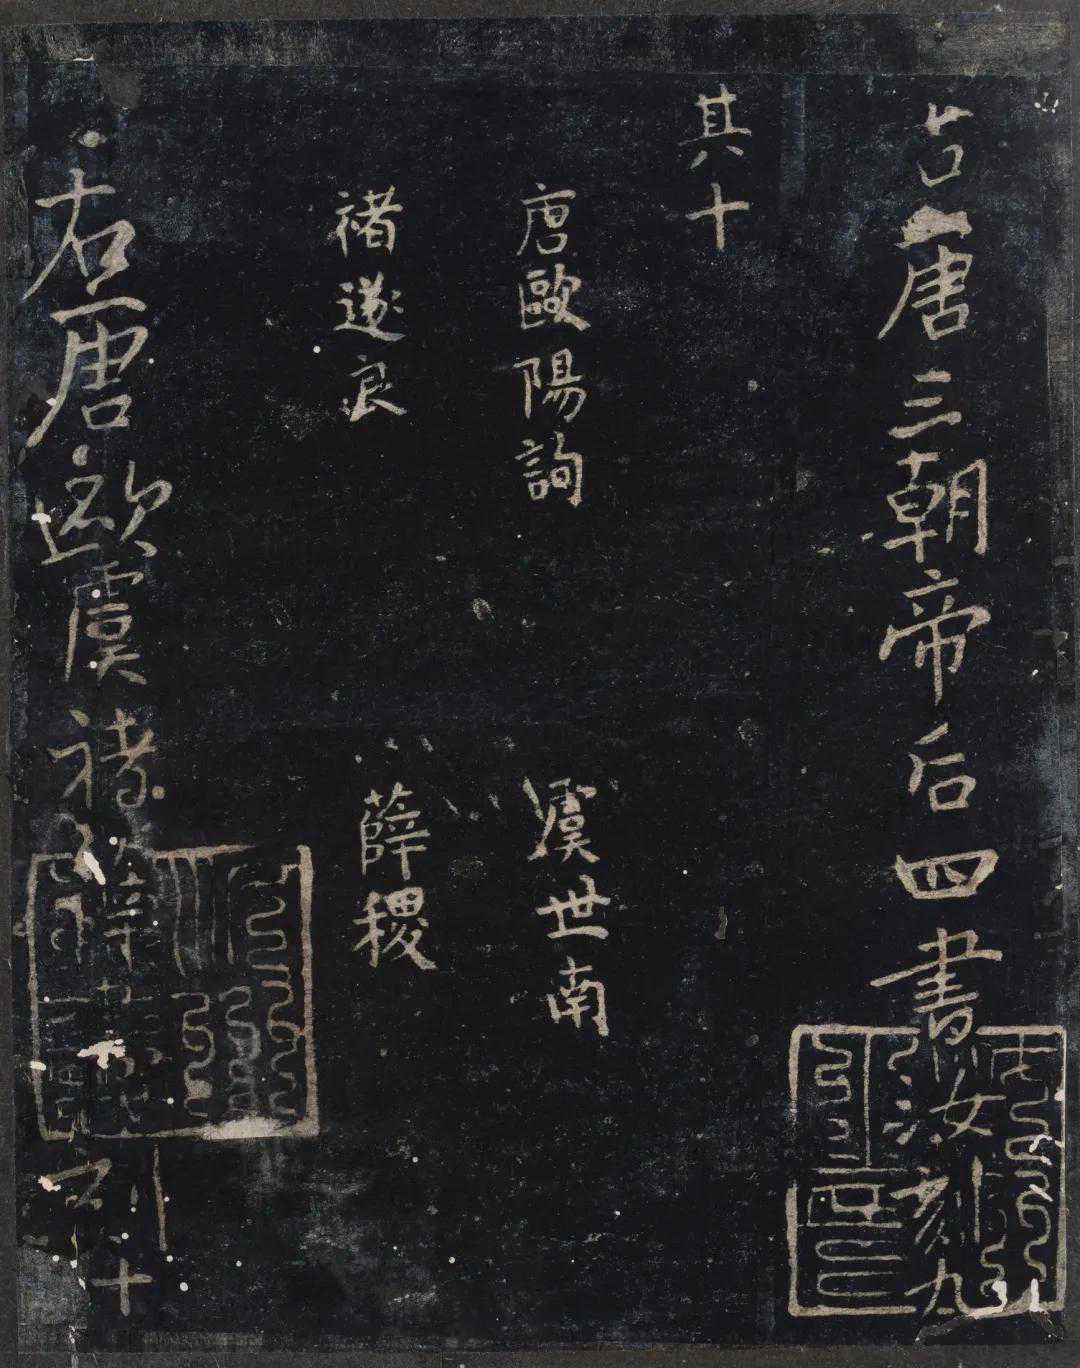 右唐三朝帝后四書汝刻九
其十
唐歐陽詢 虞世南
褚遂良 薛稷
右唐欧虞褚薛刻十